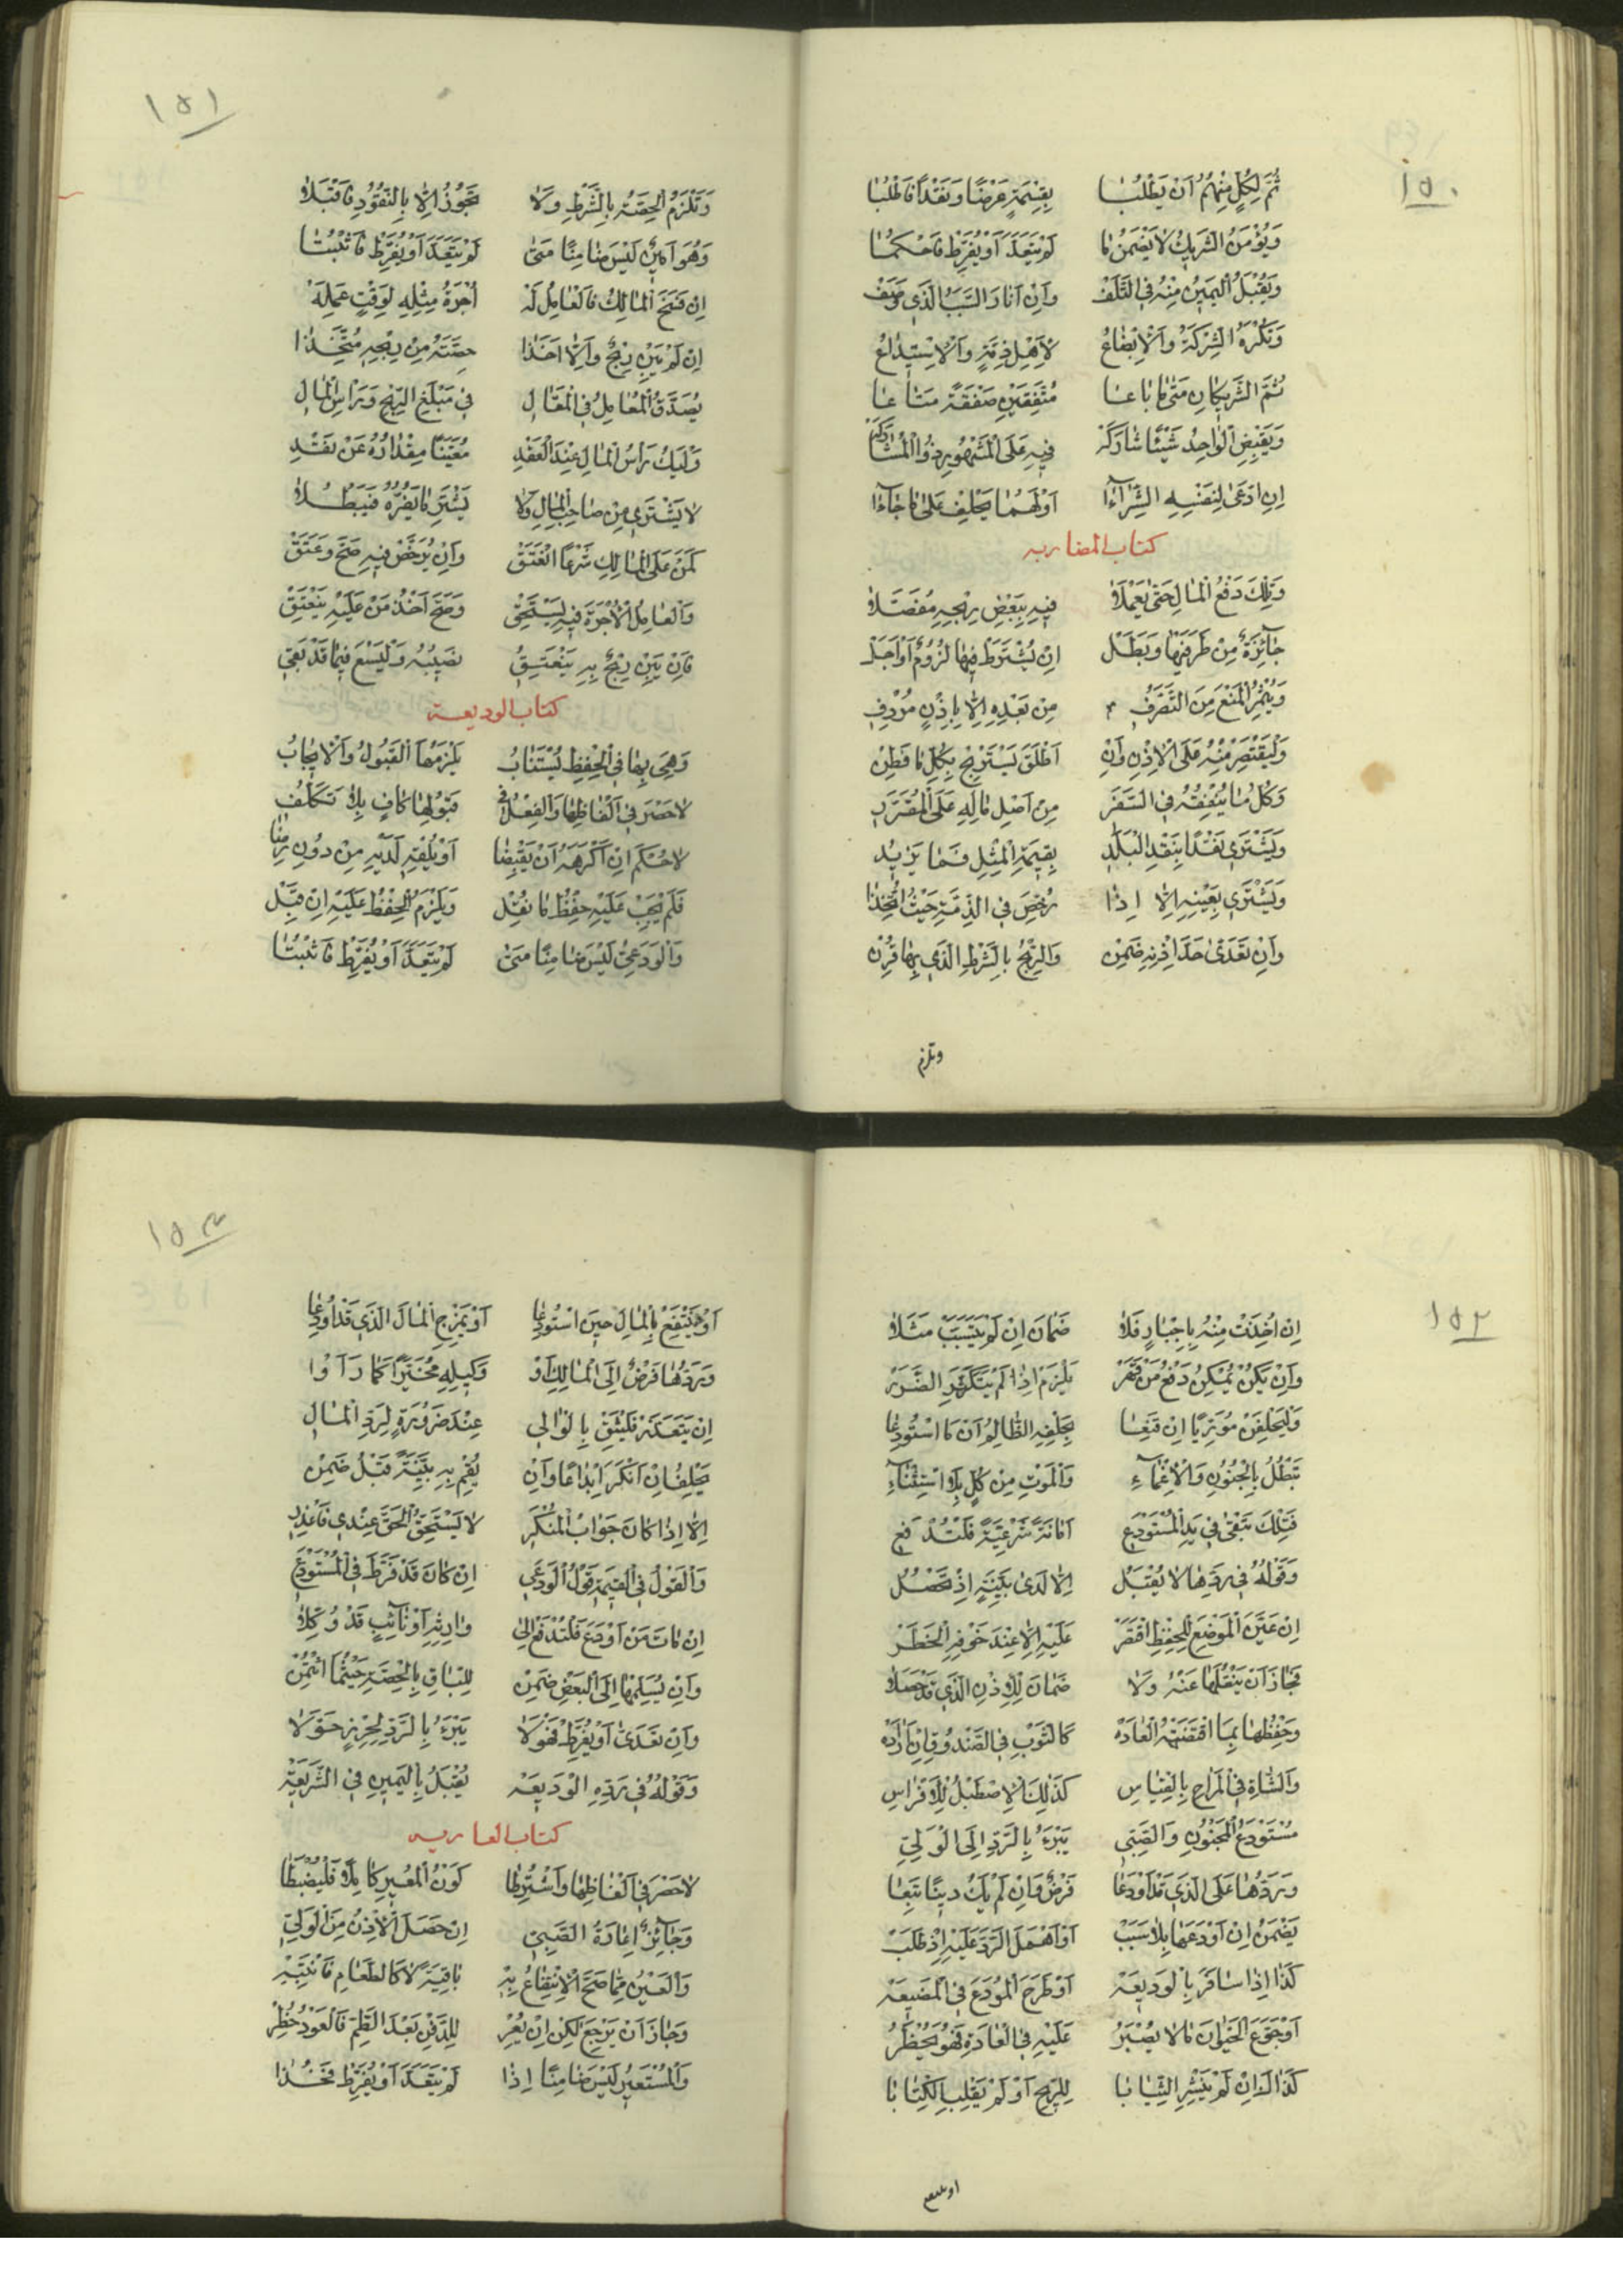 ١٥٠
ثُمَّ لِكُلٍّ مِنْهُمُ اَنْ يَطْلُبَا بِقِسْمَةٍ عَرْضًا وَنَقْدًا فَاطْلُبَا
وَيُؤْمَنُ الشَّرِيكُ لَا يَضْمَنُ مَا لَمْ يَتَعَدَّ اَوْ يُفَرِّطْ فَاحْكُمَا
وَيُقْبَلُ الْيَمِينُ مِنْهُ فِي التَّلَفْ وَاِنْ السَّبَبَ الَّذِي وَصَفْ
وَتُكْرَهُ الشِّرْكَةُ وَالْاِبْضَاعُ لِاَهْلِ ذِمَّةٍ وَالْاِسْتِيدَاعُ
ثُمَّ الشَّرِيكَانِ مَتَى مَا بَاعَا مُتَّفِقَيْنِ صَفْقَةً مَتَاعَا
وَيَقْبِضِ الْوَاحِدُ شَيْئًا شَارَكَهْ فِيهِ عَلَى الْمَشْهُورِ ذُو الْمُشَارَكَهْ
اِنِ ادَّعَى لِنَفْسِهِ الشِّرَاءَا اَوْ لَهُمَا يَحْلِفْ عَلَى مَا جَاءَا
كتاب المضاربه
وَتِلْكَ دَفْعُ الْمَالِ حَتَّى يَعْمَلَا فِيهِ بِبَعْضِ رِبْحِهِ مُفَصَّلَا
جَائِزَةٌ مِنْ طَرَفَيْهَا وَبَطَلْ اِنْ يُشْتَرَطْ فِيهَا لُزُومٌ اَوْ اَجَلْ
وَيُثْمِرُ الْمَنْعَ مِنَ التَّصَرُّفِ مِنْ بَعْدِهِ اِلَّا بِاِذْنٍ مُرْدَفِ
وَلْيَقْتَصِرْ مِنْهُ عَلَى الْاِذْنِ وَاِنْ اَطْلَقَ يَسْتَرْبِحْ بِكُلِّ مَا فَطِنْ
وَكُلُّ مَا يُنْفِقُهُ فِي السَّفَرِ مِنْ اَصْلِ مَالِهِ عَلَى الْمُقَرَّرِ
وَيَشْتَرِي نَقْدًا بِنَقْدِ الْبَلَدِ بِقِيمَةِ الْمِثْلِ فَمَا يَزِيدُ
وَيَشْتَرِي بِعَيْنِهِ اِلَّا اِذَا رُخِّصَ فِي الذِّمَّةِ حَيْثُ اتُّخِذَا
وَاِنْ تَعَدَّى حَدَّ اِذْنِهِ ضَمِنْ وَالرِّبْحُ بِالشَّرْطِ الَّذِي بِهَا قُرِنْ
وتلزم
١٥١
وَتَلْزَمُ الْحِصَّةُ بِالشَّرْطِ وَلَا تَجُوزُ اِلَّا بِالنُّقُودِ فَاقْبَلَا
وَهُوَ اَمِينٌ لَيْسَ ضَامِنًا مَتَى لَمْ يَتَعَدَّ اَوْ يُفَرِّطْ فَاثْبُتَا
اِنْ فَسَخَ الْمَالِكُ فَالْعَامِلُ لَهْ اُجْرَةُ مِثْلِهِ لِوَقْتِ عَمَلِهْ
اِنْ لَمْ يَبِنْ رِبْحٌ وَاِلَّا اَخَذَا حِصَّتَهُ مِنْ رِبْحِهِ مُتَّخِذَا
يُصَدَّقُ الْعَامِلُ فِي الْمَقَالِ فِي مَبْلَغِ الرِّبْحِ وَرَأْسِ الْمَالِ
وَلْيَكُ رَأْسُ الْمَالِ عِنْدَ الْعَقْدِ مُعَيَّنًا مِقْدَارُهُ عَنْ نَقْدِ
لَا يَشْتَرِي مِنْ صَاحِبِ الْمَالِ وَلَا يَشْتَرِ مَا يَضُرُّهُ فَيَبْطُلَا
كَمَنْ عَلَى الْمَالِكِ شَرْعًا انْعَتَقْ وَاِنْ يُرَخِّصْ فِيهِ صَحَّ وَعَتَقْ
وَالْعَامِلُ الْاُجْرَةَ فِيهِ يَسْتَحِقْ وَصَحَّ اَخْذُ مَنْ عَلَيْهِ يَنْعَتِقْ
فَاِنْ يَبِنْ رِبْحٌ بِهِ يَنْعَتِقُ نَصِيبُهُ وَلْيَسْعَ فِيمَا قَدْ بَقِي
كتاب الوديعـة
وَهِيَ بِهَا فِي الْحِفْظِ يُسْتَنَابُ يَلْزَمُهَا الْقَبُولُ وَالْاِيجَابُ
لَا حَصْرَ فِي اَلْفَاظِهَا وَالْفِعْلُ فِي قَبُولِهَا كَافٍ بِلَا تَكَلُّفِ
لَا حُكْمَ اِنْ اَكْرَهَهُ اَنْ يَقْبِضَا اَوْ يُلْقِهِ لَدَيْهِ مِنْ دُونِ رِضَا
فَلَمْ يَجِبْ عَلَيْهِ حِفْظُ مَا نُقِلْ وَيَلْزَمُ الْحِفْظُ عَلَيْهِ اِنْ قَبِلْ
وَالْوَدَعِيُّ لَيْسَ ضَامِنًا مَتَى لَمْ يَتَعَدَّ اَوْ يُفَرِّطْ فَاثْبُتَا
١٥٢
اِنْ اُخِذَتْ مِنْهُ بِاِجْبَارٍ فَلَا ضَمَانَ اِنْ لَمْ يَتَسَبَّبْ مَثَلَا
وَاِنْ يَكُنْ يُمْكِنُ دَفْعُ مَنْ قَهَرْ يَلْزَمْ اِذَا لَمْ الضَّرَرْ
وَلْيَحْلِفَنْ مُوَرِّيًا اِنْ قَنِعَا بِحَلْفِهِ الظَّالِمُ اَنْ مَا اسْتُودِعَا
تَبْطُلُ بِالْجُنُونِ وَالْاِغْمَاءِ وَالْمَوْتِ مِنْ كُلٍّ بِلَا اسْتِثْنَاءِ
فَتِلْكَ تَبْقَى فِي يَدِ الْمُسْتَوْدَعِ اَمَانَةً شَرْعِيَّةً فَلْتُدْفَعِ
وَقَوْلُهُ فِي رَدِّهَا لَا يُقْبَلُ اِلَّا لَدَى بَيِّنَةٍ اِذْ تَحْصُلُ
اِنْ عَيَّنَ الْمَوْضِعَ لِلْحِفْظِ اقْتَصَرْ عَلَيْهِ اِلَّا عِنْدَ خَوْفِهِ الْخَطَرْ
فَجَازَ اَنْ يَنْقُلَهَا عَنْهُ وَلَا ضَمَانَ لِلْاِذْنِ الَّذِي قَدْ حَصَلَا
وَحِفْظُهَا بِمَا اقْتَضَتْهُ الْعَادَهْ كَالثَّوْبِ فِي الصُّنْدُوقِ اِنْ اَرَادَهْ
وَالشَّاةِ فِي الْمَرَاحِ بِالْقِيَاسِ كَذَلِكَ الْاِصْطَبْلُ لِلْاَفْرَاسِ
مُسْتَوْدَعُ الْمَجْنُونِ وَالصَّبِيِّ يَبْرَءُ بِالرَّدِّ اِلَى الْوَلِيِّ
وَرَدُّهَا عَلَى الَّذِي قَدْ اَوْدَعَا فَرْضٌ وَاِنْ لَمْ يَكُ دِينًا تَبِعَا
يَضْمَنُ اِنْ اَوْدَعَهَا بِلَا سَبَبْ اَوْ اَهْمَلَ الرَّدَّ عَلَيْهِ اِذْ طَلَبْ
كَذَا اِذَا سَافَرَ بِالْوَدِيعَهْ اَوْ طَرَحَ الْمُودَعَ فِي الْمَضِيعَهْ
اَوْ جَوَّعَ الْحَيْوَانَ مَا لَا يَصْبِرُ عَلَيْهِ فِي الْعَادَةِ فَهْوَ يُحْظَرُ
كَذَاكَ اِنْ لَمْ يَنْشُرِ الثِّيَابَا لِلرِّيحِ اَوْ لَمْ يَقْلِبِ الْكِتَابَا
او ينتفع
١٥٣
اَوْ يَنْتَفِعْ بِالْمَالِ حِينَ اسْتُودِعَا اَوْ يَمْزُجِ الْمَالَ الَّذِي قَدْ اُودِعَا
وَرَدُّهَا فَرْضٌ اِلَى الْمَالِكِ اَوْ وَكِيلِهِ مُخَيَّرًا كَمَا رَاَوْا
اِنْ يَتَعَذَّرْ فَلْيَثِقْ بِالْوَالِي عِنْدَ ضَرُورَةٍ لِرَدِّ الْمَالِ
يَحْلِفُ اِنْ اَنْكَرَ اِيدَاعًا وَاِنْ يُقِمْ بِهِ بَيِّنَةً قَبْلُ ضَمِنْ
اِلَّا اِذَا كَانَ جَوَابُ الْمُنْكِرِ لَا يَسْتَحِقُّ الْحَقَّ عِنْدِي فَاعْذِرِ
وَالْقَوْلُ فِي الْقِيمَةِ قَوْلُ الْوَدَعِي اِنْ كَانَ قَدْ فَرَّطَ فِي الْمُسْتَوْدَعِ
اِنْ مَاتَ مَنْ اَوْدَعَ فَلْتُدْفَعْ اِلَى وَارِثِهِ اَوْ نَائِبٍ قَدْ وُكِّلَا
وَاِنْ يُسَلِّمْهَا اِلَى الْبَعْضِ ضَمِنْ لِلْبَاقِ بِالْحِصَّةِ حَيْثُمَا ائْتُمِنْ
وَاِنْ تَعَدَّى اَوْ يُفَرِّطْ فَهْوَ لَا يَبْرَءُ بِالرَّدِّ لِحِرْزٍ حَوَّلَا
وَقَوْلُهُ فِي رَدِّهِ الْوَدِيعَهْ يُقْبَلُ بِالْيَمِينِ فِي الشَّرِيعَهْ
كتاب العاريـه
لَا حَصْرَ فِي اَلْفَاظِهَا وَاشْتُرِطَا كَوْنُ الْمُعِيرِ كَامِلًا فَلْيُضْبَطَا
وَجَائِزٌ اِعَارَةُ الصَّبِيِّ اِنْ حَصَلَ الْاِذْنُ مِنَ الْوَلِيِّ
وَالْعَيْنُ مِمَّا صَحَّ الْاِنْتِفَاعُ بِهْ بَاقِيَةً لَا كَالطَّعَامِ فَانْتَبِهْ
وَجَازَ اَنْ يَرْجِعَ لَكِنْ اِنْ يُعِرْ لِلدَّفْنِ بَعْدَ الطَّمِّ فَالْعَوْدُ حُظِرْ
وَالْمُسْتَعِيرُ لَيْسَ ضَامِنًا اِذَا لَمْ يَتَعَدَّ اَوْ يُفَرِّطْ فَخُذَا